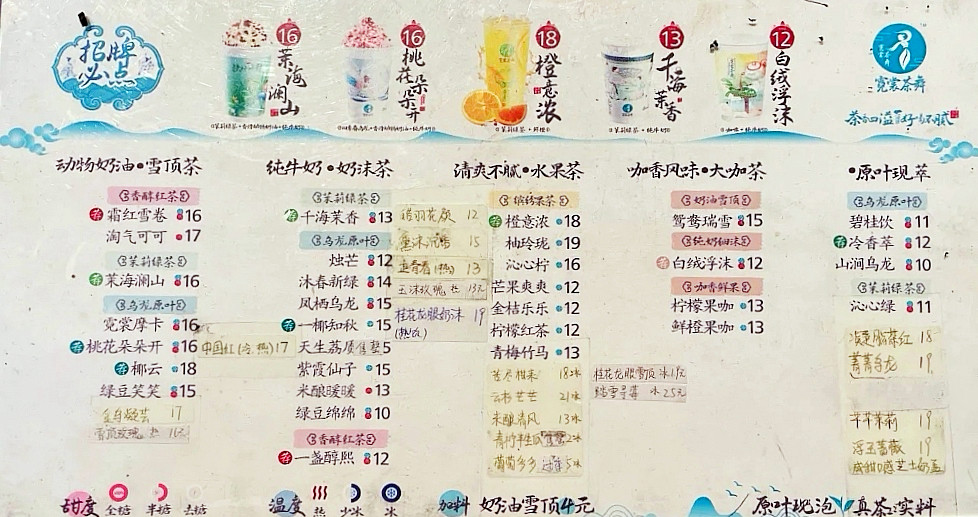 招牌必点
16 茉海澜山
16 桃花朵朵开
18 橙意浓
13 千海茉香
12 白绒浮沫
霓裳茶舞
动物奶油•雪顶茶
香醇红茶
荐 霜红雪卷 16
淘气可可 17
茉莉绿茶
荐 茉海澜山 16
乌龙原叶
霓裳摩卡 16
荐 桃花朵朵开 16
荐 椰云 18
绿豆笑笑 15
17
雪顶玫瑰 热
中国红(冷,热) 17
纯牛奶•奶沫茶
茉莉绿茶
荐 千海茉香 13
乌龙原叶
烛芒 12
沐春新绿 14
凤栖乌龙 15
荐 一椰知秋 15
天生荔 5
紫霞仙子 15
米酿暖暖 13
绿豆绵绵 10
香醇红茶
荐 一盏醇熙 12
12
15
13
玉沫玫瑰 热
桂花龙眼奶沫 19
(热饮)
清爽不腻•水果茶
缤纷果茶
荐 橙意浓 18
柚玲珑 19
沁心柠 16
芒果爽爽 12
金桔乐乐 12
柠檬红茶 12
青梅竹马 13
苦尽柑来 18冰
云杉芒芒 21冰
米酿清风 13冰
葡萄多多
咖香风味•大咖茶
奶油雪顶
鸳鸯瑞雪 15
纯奶细沫
荐 白绒浮沫 12
咖香鲜果
柠檬果咖 13
鲜橙果咖 13
桂花龙眼雪顶 冰
冰 25元
•原叶现萃
乌龙原叶
碧桂饮 11
荐 冷香萃 12
山涧乌龙 10
茉莉绿茶
沁心绿 11
18
19
芊芊茉莉 19
浮玉蔷薇 19
咸甜口感芝士奶盖
甜度 全糖 半糖 去糖
温度 热 少冰 冰
加料 奶油雪顶4元
原叶现泡 真茶实料